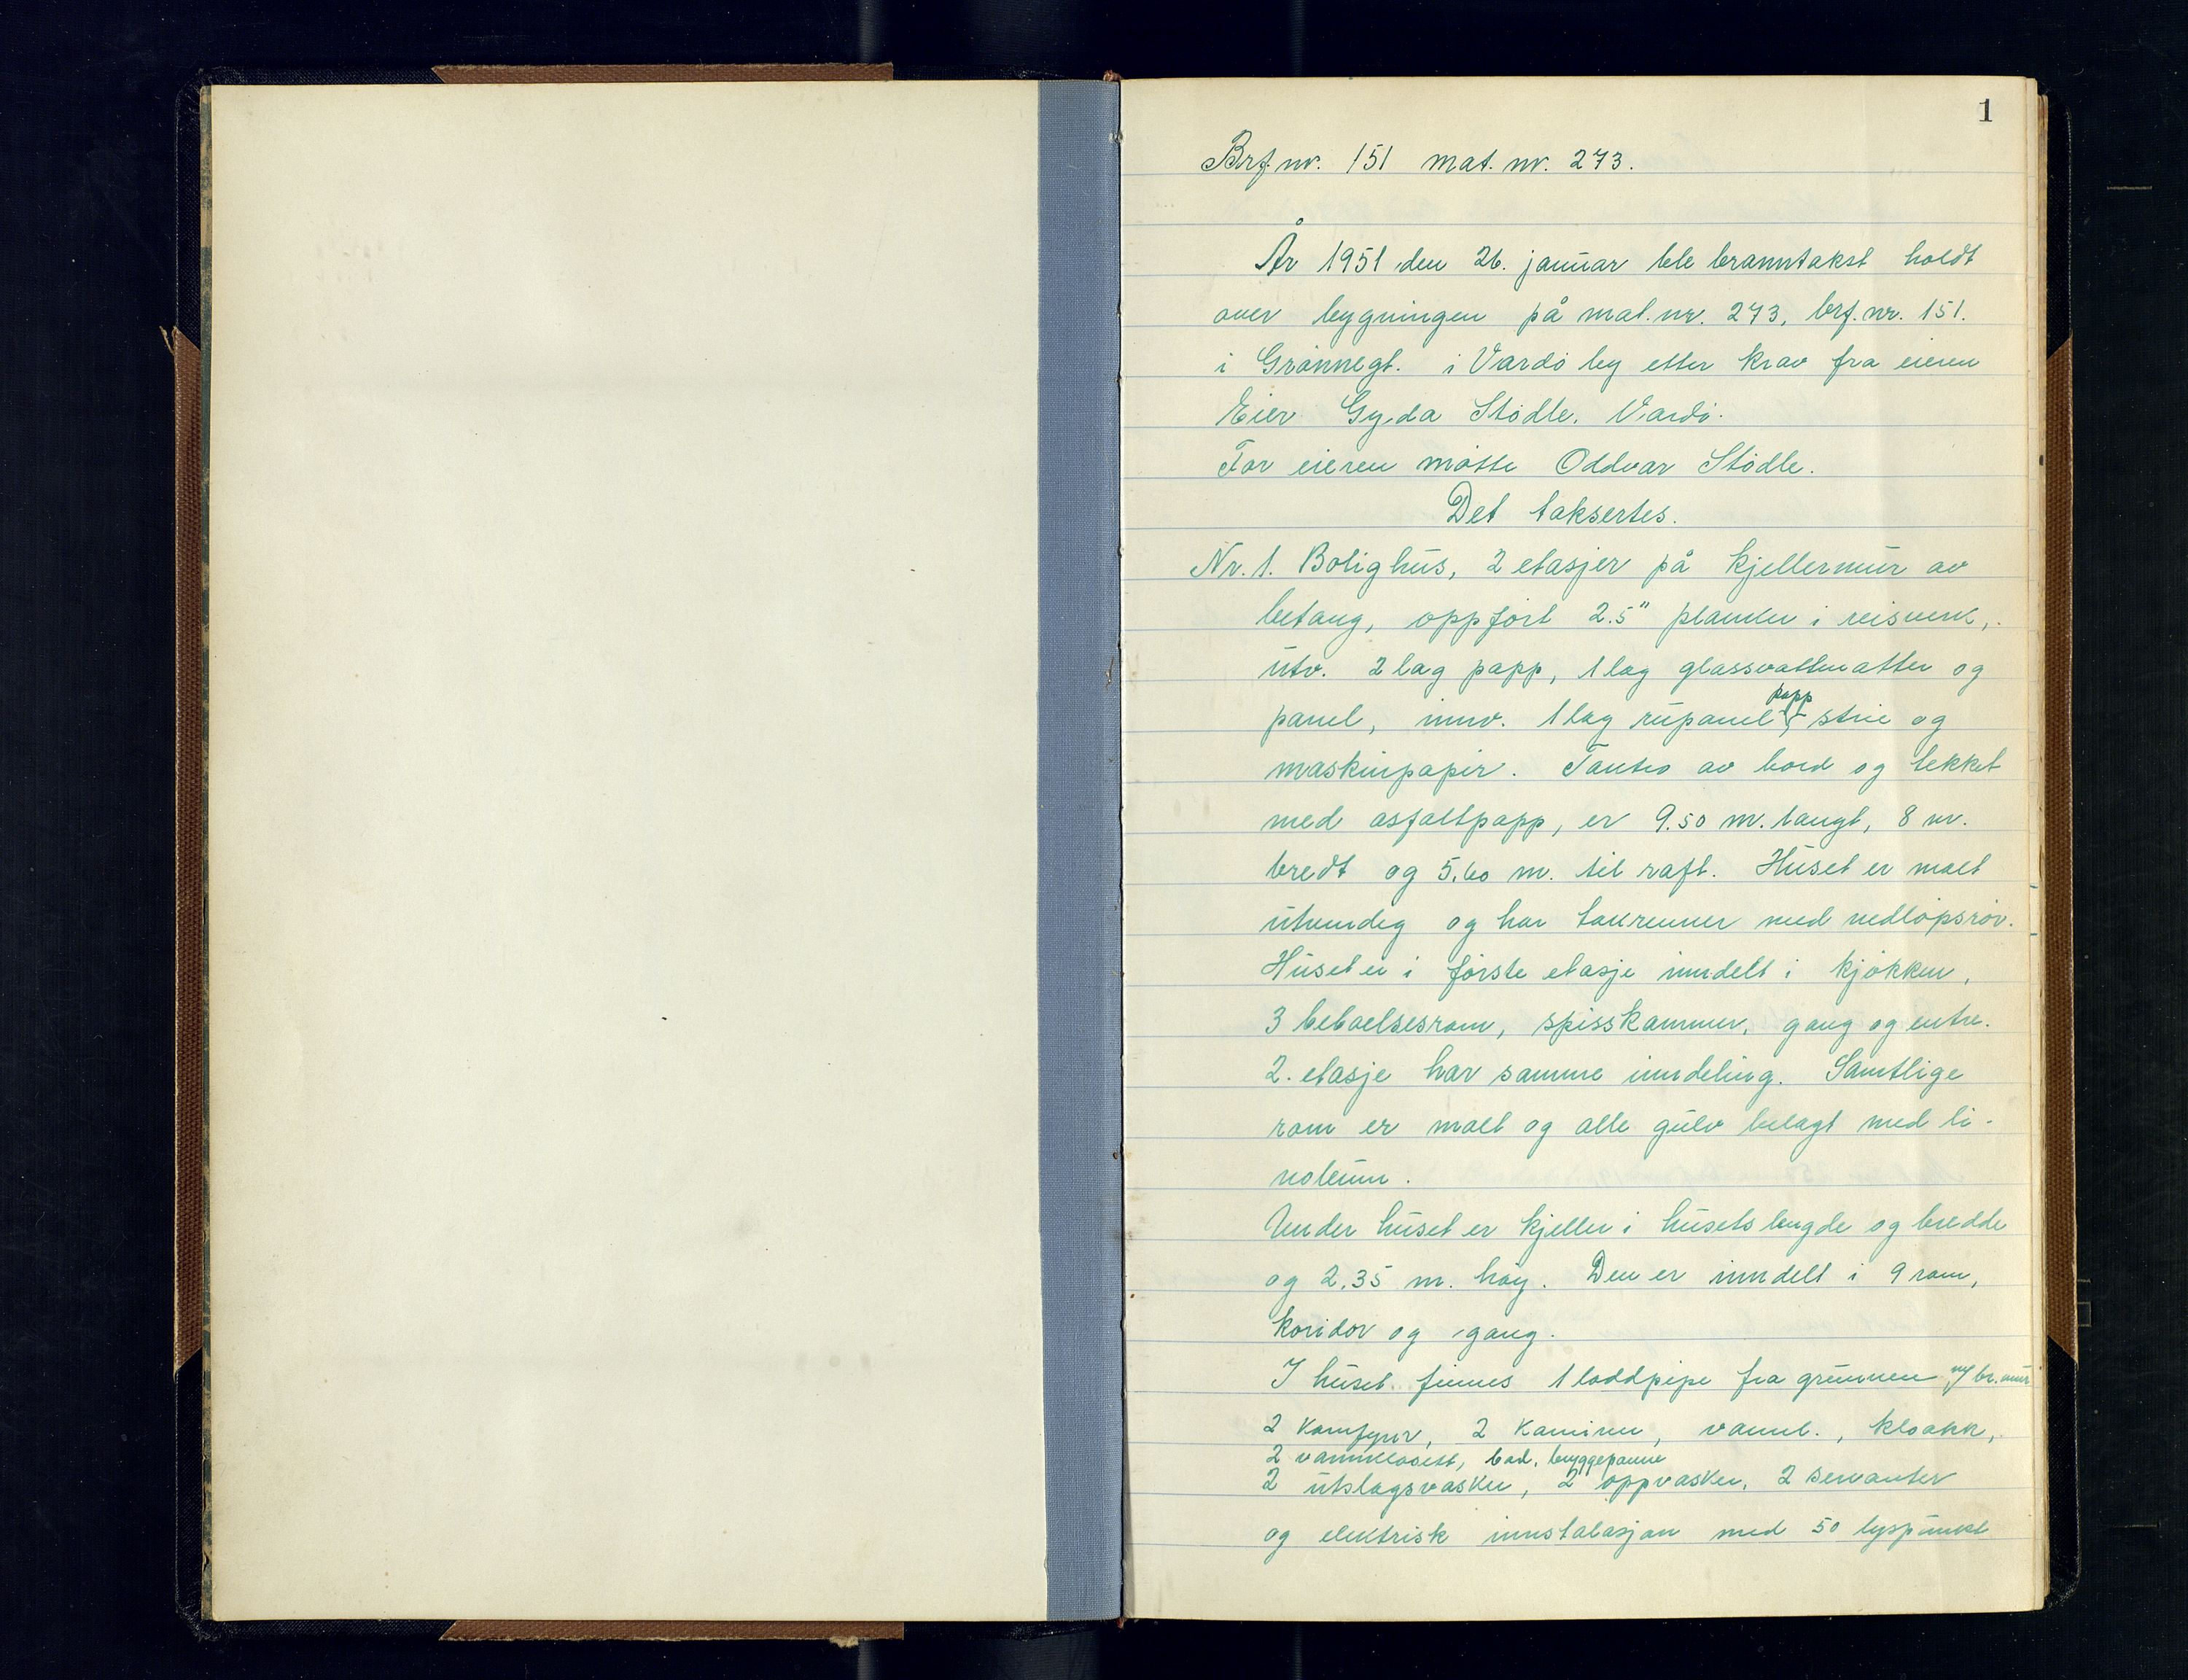 1
Brf.nr. 151 mat. nr. 273.
År 1951 den 26. januar ble branntakst holdt
over bygningen på mat.nr. 273, brf.nr. 151.
i Grønnegt. i Vardø by etter krav fra eieren
Eier Gyda Stødle. Vardø.
For eieren møtte Oddvar Stødle.
Det taksertes.
Nr. 1. Bolighus, 2 etasjer på kjellermur av
betong, oppført 2.5" planker i reisverk,
utv. 2 lag papp, 1 lag glassvattmatter og
panel, innv. 1 lag rupanel papp strie og
maskinpapir. Tautro av bord og tekket
med asfaltpapp, er 9.50 m. langt, 8 m.
bredt og 5.60 m. til raft. Huset er malt
utvendig og har takrenner med nedløpsrør.
Huset er i første etasje inndelt i kjøkken,
3 beboelsesrom, spisskammer, gang og entre.
2. etasje har samme inndeling. Samtlige
rom er malt og alle gulv belagt med li-
noleum.
Under huset er kjeller i husets lengde og bredde
og 2.35 m. høy. Den er inndelt i 9 rom,
koridor og gang.
I huset finnes 1 loddpipe fra grunnen m/ br.mur
2 komfyrer, 2 kaminer, vannl., kloakk,
2 vannklosett, bad, bryggepanne
2 utslagsvasker, 2 oppvasker, 2 servanter
og elektrisk innstalasjon med 50 lyspunkt